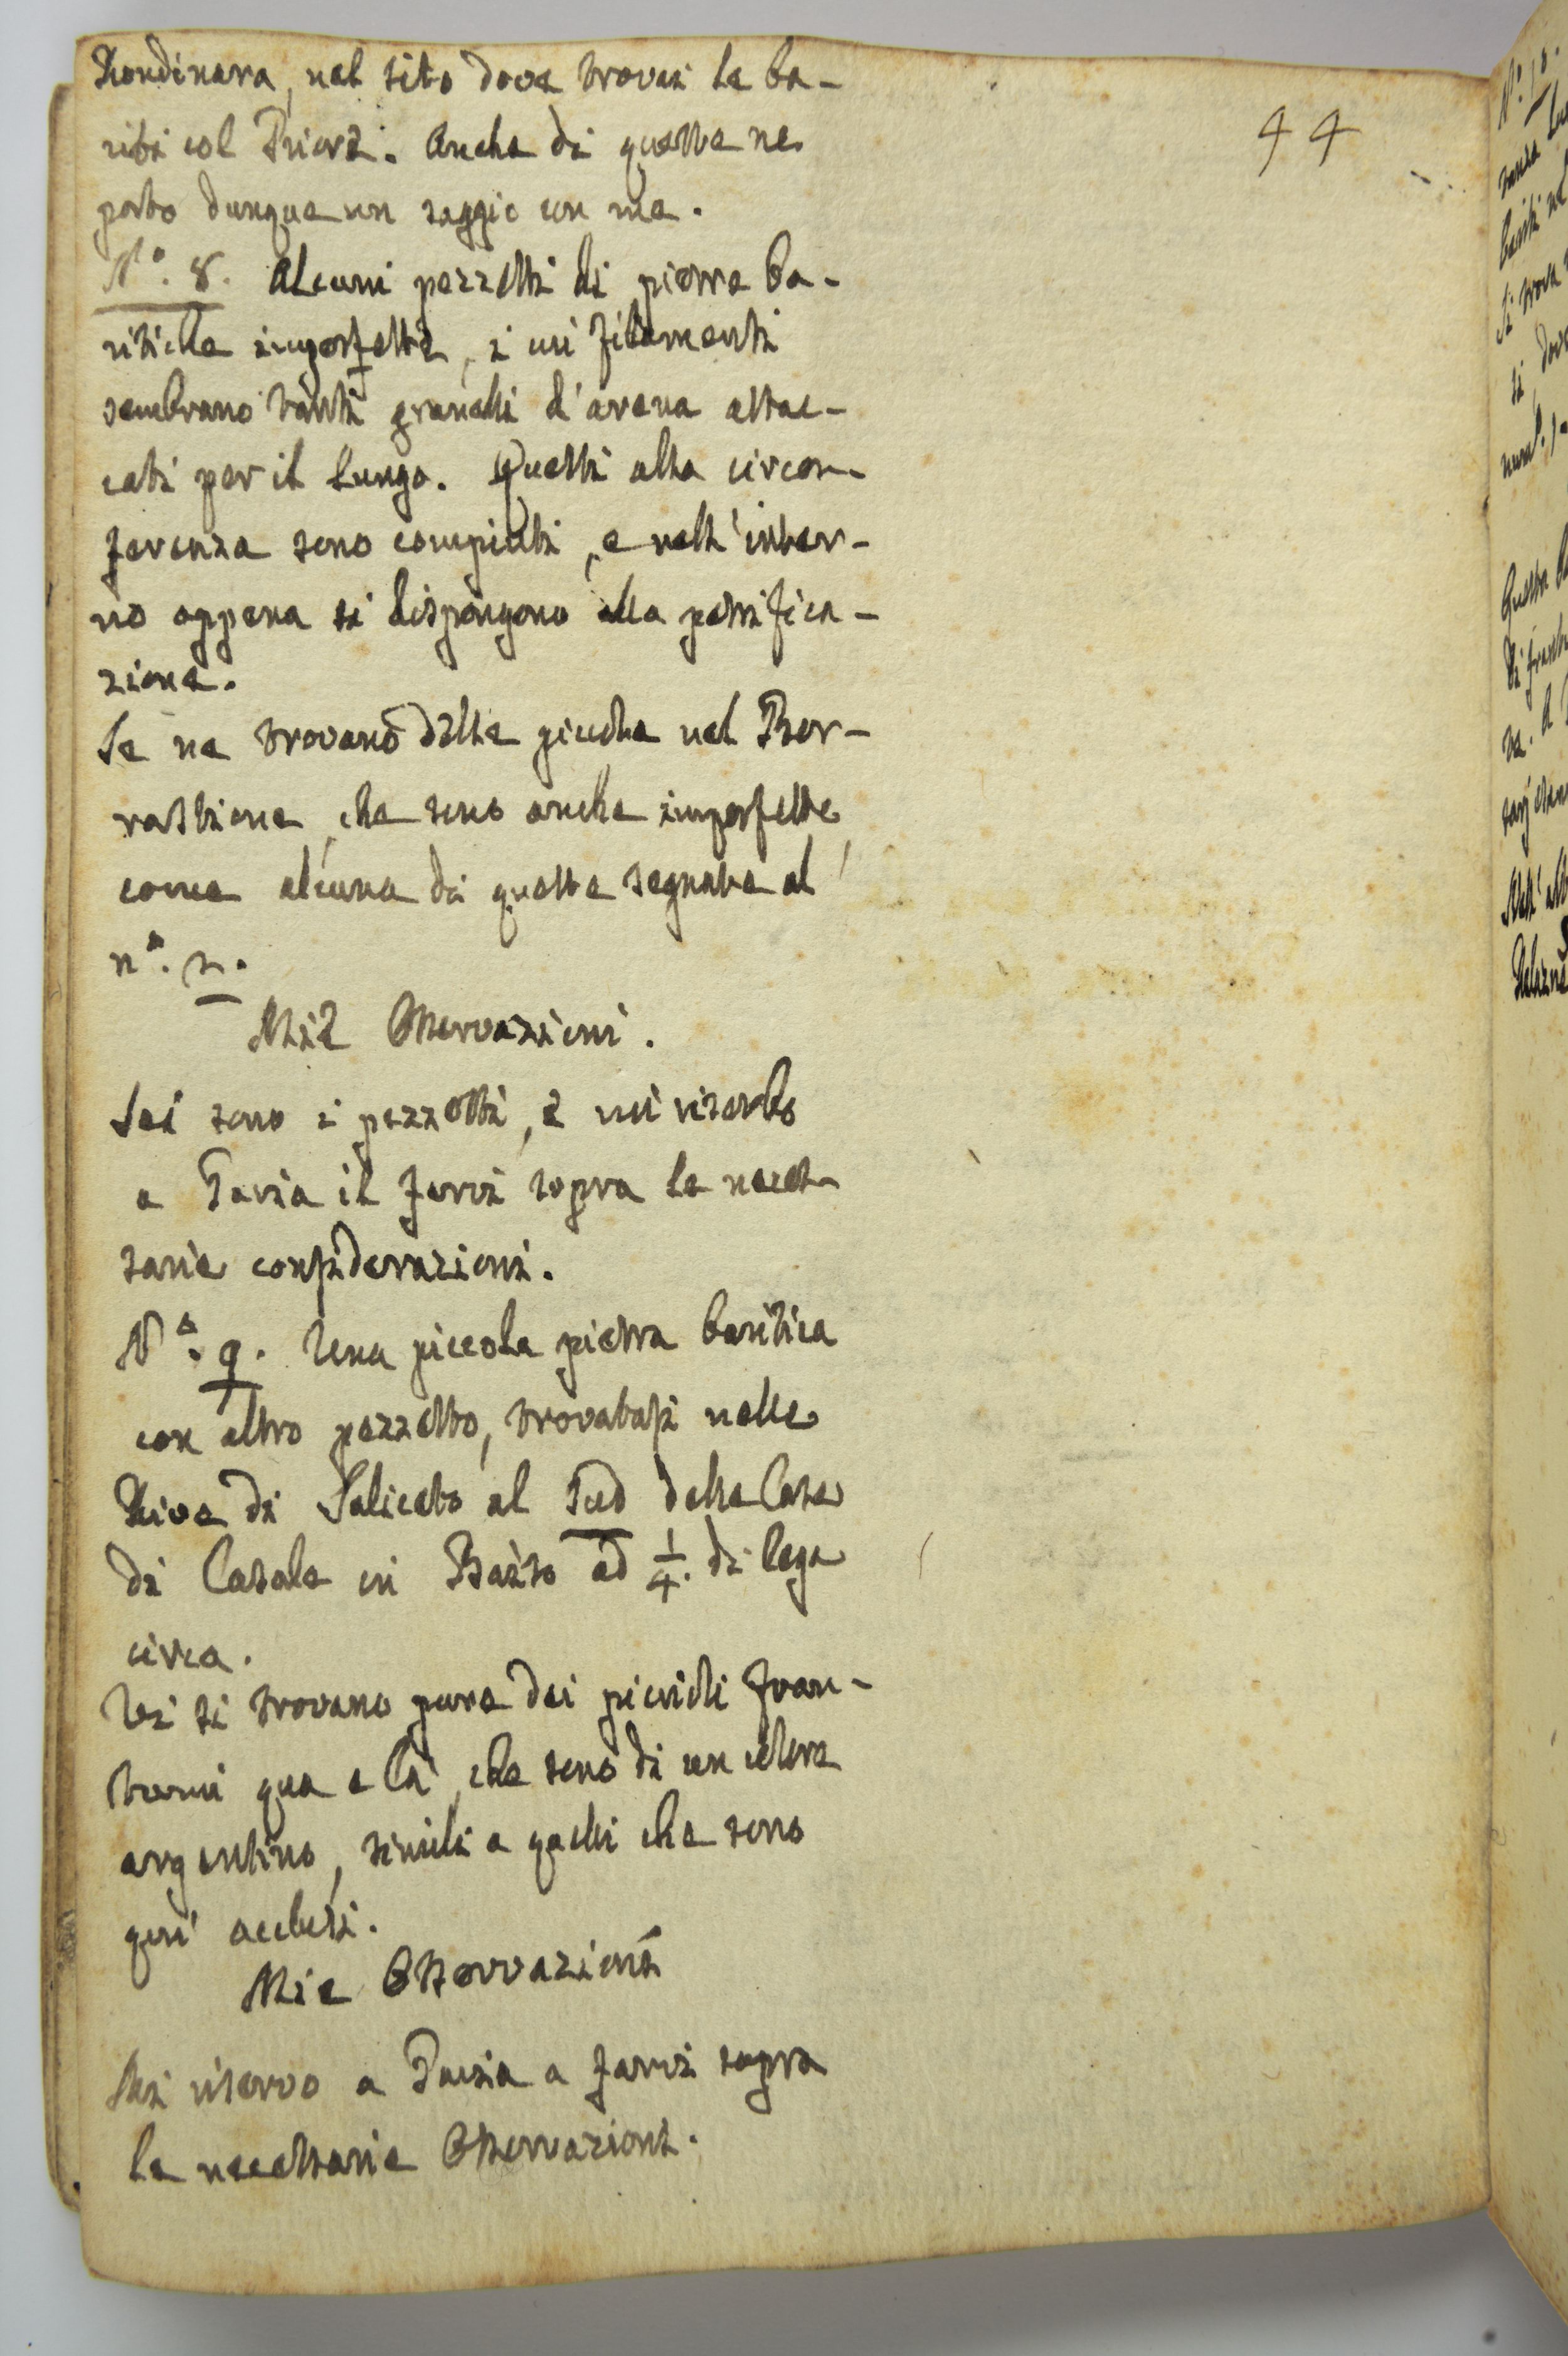 44
Rondinara, nel sito dove trovai la ba-
riti col Priori. Anche di queste ne
porto dunque un saggio con me.
N.° 8. Alcuni pezzetti di pietre ba-
ritiche imperfette, i cui filamenti
sembrano tanti granelli d'arena attac-
cati per il lungo. Questi alla circon-
ferenza sono compiuti, e nell'inter-
no appena si dispongono alla petrifica-
zione.
Se ne trovano delle picchie nel Bor-
rattione, che sono anche imperfette,
come alcuna di queste segnate al
n.° 2.
Mie Osservazioni.
Sei sono i pezzetti, e mi riserbo
a Pavia il farvi sopra le neces-
sarie considerazioni.
N.° 9. Una piccola pietra baritica
con altro pezzetto, trovatasi nelle
Rive di Saliceto al Sud della Casa
di Casale in Baiso ad 1/4. di lega
circa.
Vi si trovano pure dei piccioli fran-
tumi qua e là, che sono di un colore
argentino, simili a quelli che sono
qui acclusi.
Mie Osservazioni
Mi riservo a Pavia a farvi sopra
le necessarie Osservazioni.